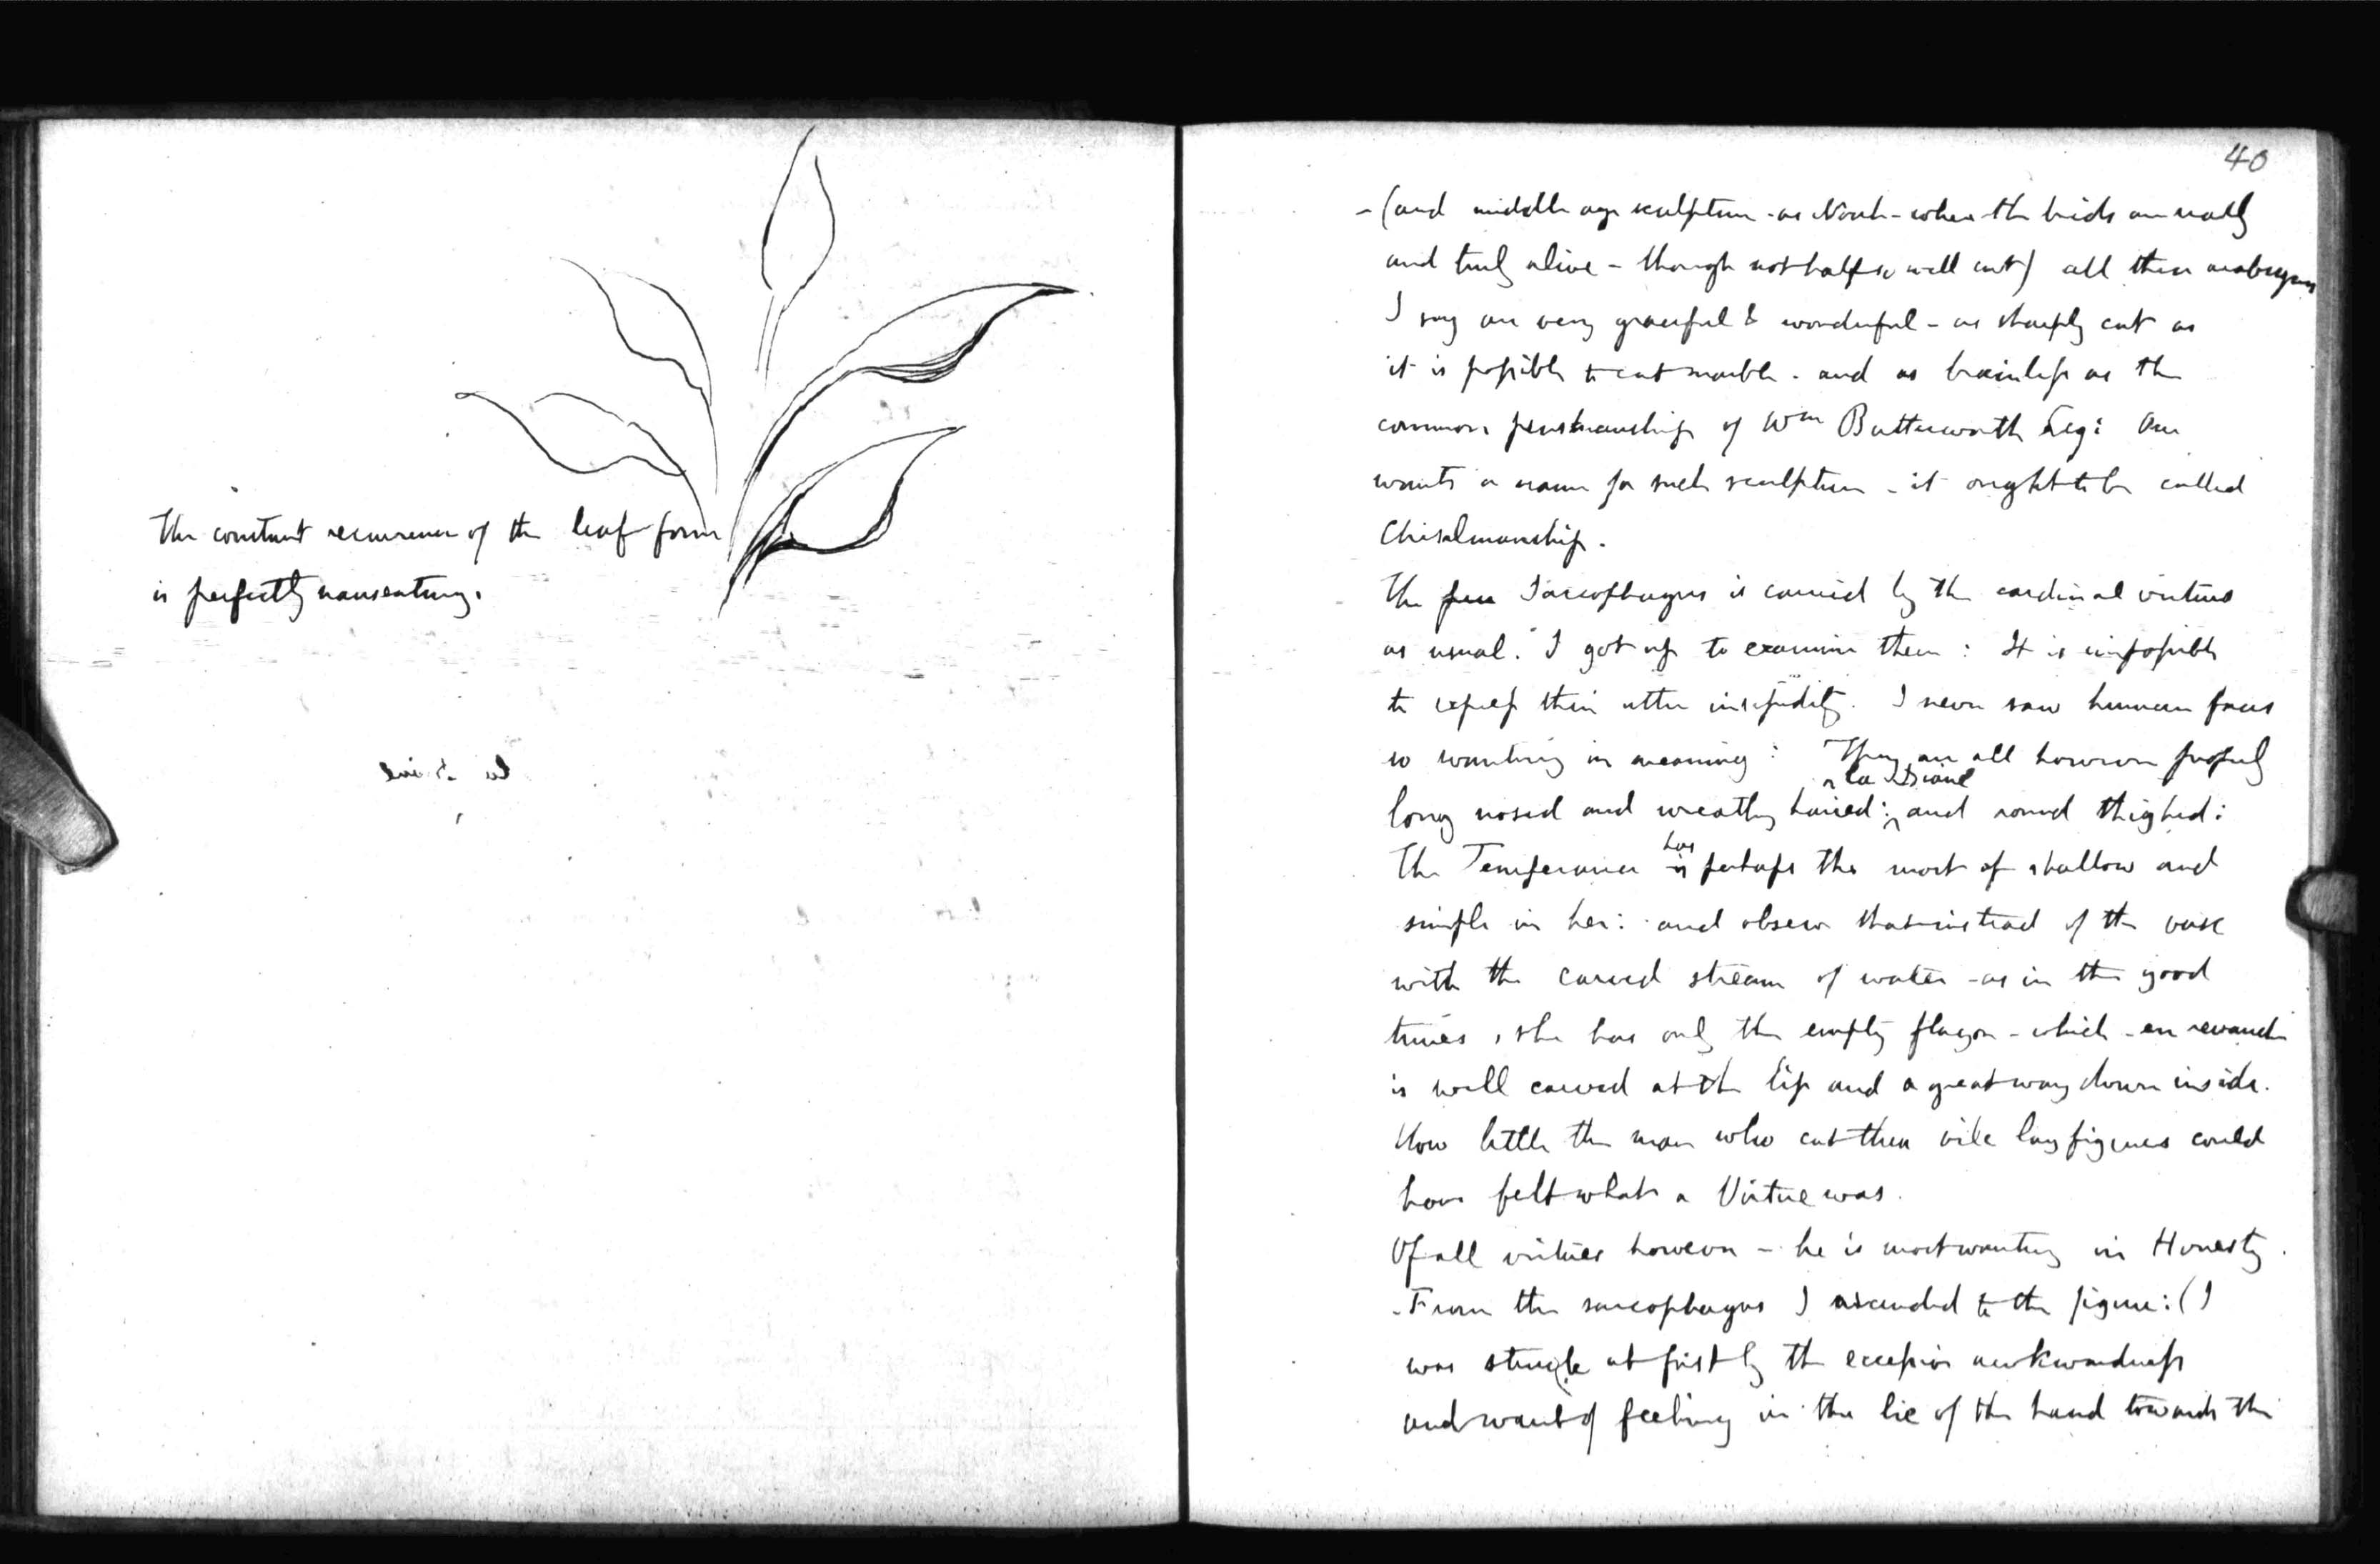 The constant recurrence of the leaf form
is perfectly nauseating.
40
- (and middle age sculpture - as Noah - where the birds are really
and truly alive - though not half so well cut) all these arabesques
I say are very graceful & wonderful - as sharply cut as
it is possible to cut marble. and as brainless as the
common penmanship of Wm Butterworth Esq: One
wants a name for such sculpture - it ought to be called
Chiselmanship.
The Sarcophagus is carried by the cardinal virtues
as usual. I got up to examine them: It is impossible
to express their utter insipidity. I never saw human faces
so wanting in meaning: They are all however properly
long nosed and wreathy haired: a la Diane and round thighed:
The Temperance has perhaps the most of shallow and
simple in her: and observe that instead of the vase
with the carved stream of water - as in the good
times, she has only the empty flagon - which - en revanche
is well carved at the lip and a great way down inside.
How little the man who cut these vile lay figures could
have felt what a Virtue was.
Of all virtues however - he is most wanting in Honesty.
- From the sarcophagus I ascended to the figure: (I
was struck at first by the excessive awkwardness
and want of feeling in the lie of the hand towards the